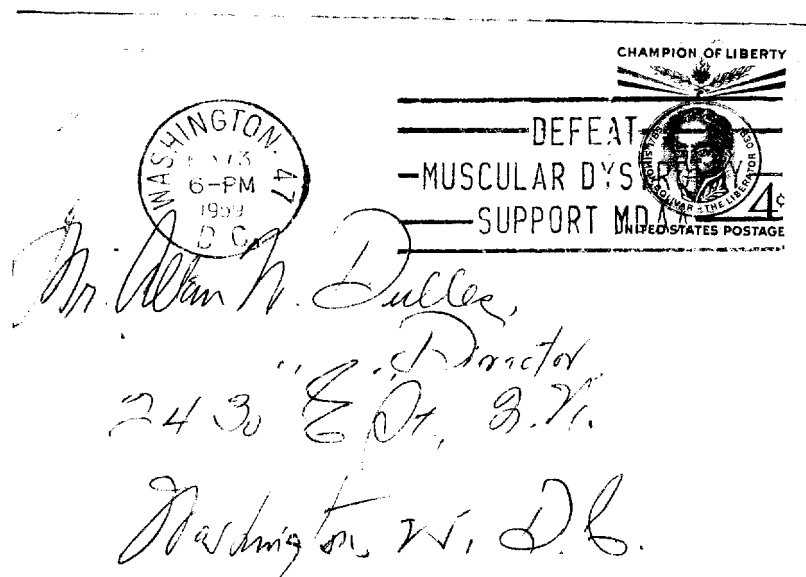 CHAMPION OF LIBERTY
WASHINGTON. 47
6-PM
1959
D C.
DEFEAT
MUSCULAR DYSTROPHY
SUPPORT MDAA
SIMON BOLIVAR THE LIBERATOR
4¢
UNITED STATES POSTAGE
Mr. Allen W. Dulles,
Director
2430 "E" St., N.W.
Washington, D.C.